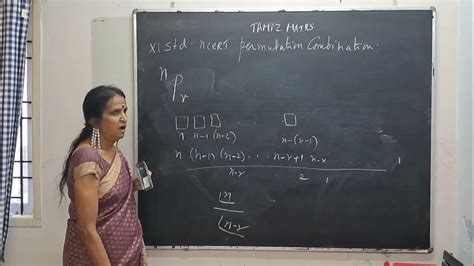 TAMIZ MATHS
XI std. NCERT permutation Combination.
n
P
r
n n-1 (n-2) n-(r-1)
n (n-1) (n-2) ... n-r+1 n-r 1
n-r 2 1
n
n-r